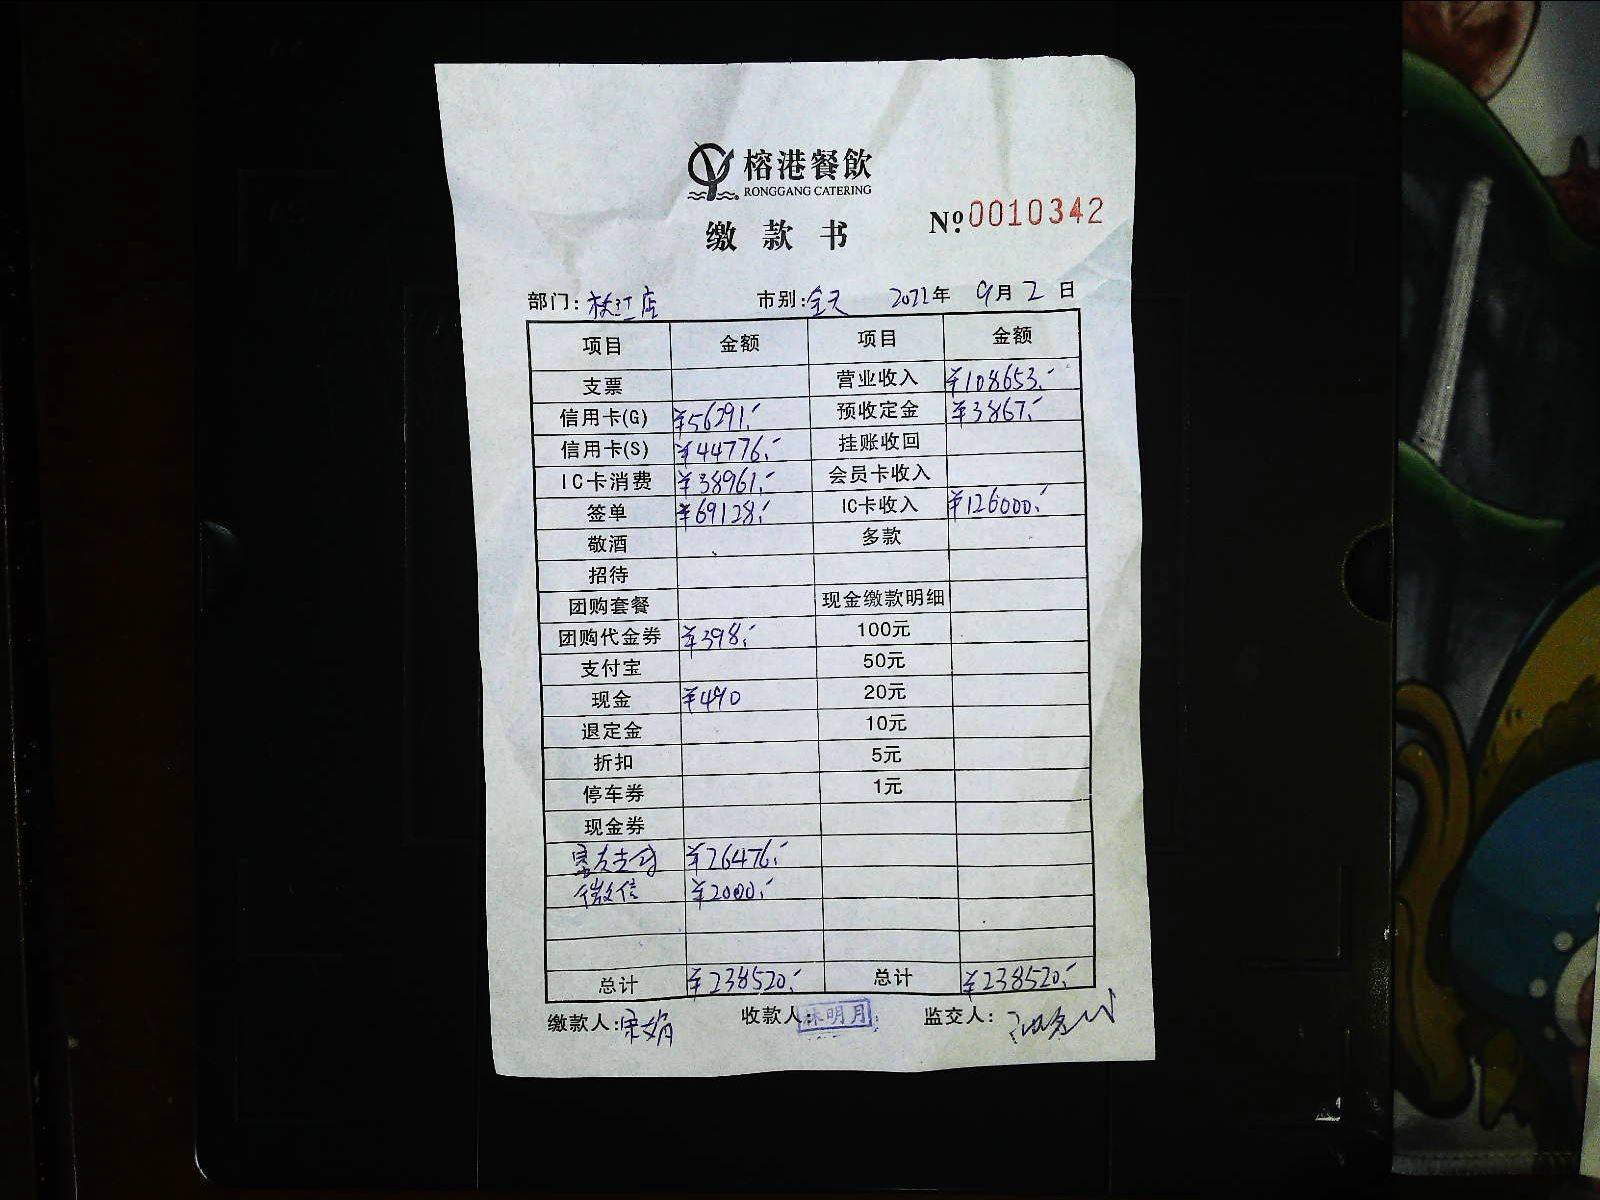 榕港餐飲
RONGGANG CATERING
缴款书
№0010342
部门: 枝江店 市别: 全天 2022年 9月 2 日
项目 金额 项目 金额
支票 营业收入 ¥108653.-
信用卡(G) ¥56291.- 预收定金 ¥3867.-
信用卡(S) ¥44776.- 挂账收回
IC卡消费 ¥38961.- 会员卡收入
签单 ¥69128.- IC卡收入 ¥126000.-
敬酒 多款
招待
团购套餐 现金缴款明细
团购代金券 ¥398.- 100元
支付宝 50元
现金 ¥490 20元
退定金 10元
折扣 5元
停车券 1元
现金券
¥26476.-
微信 ¥2000.-
总计 ¥238520.- 总计 ¥238520.-
缴款人: 宋娟 收款人: 林明月 监交人: